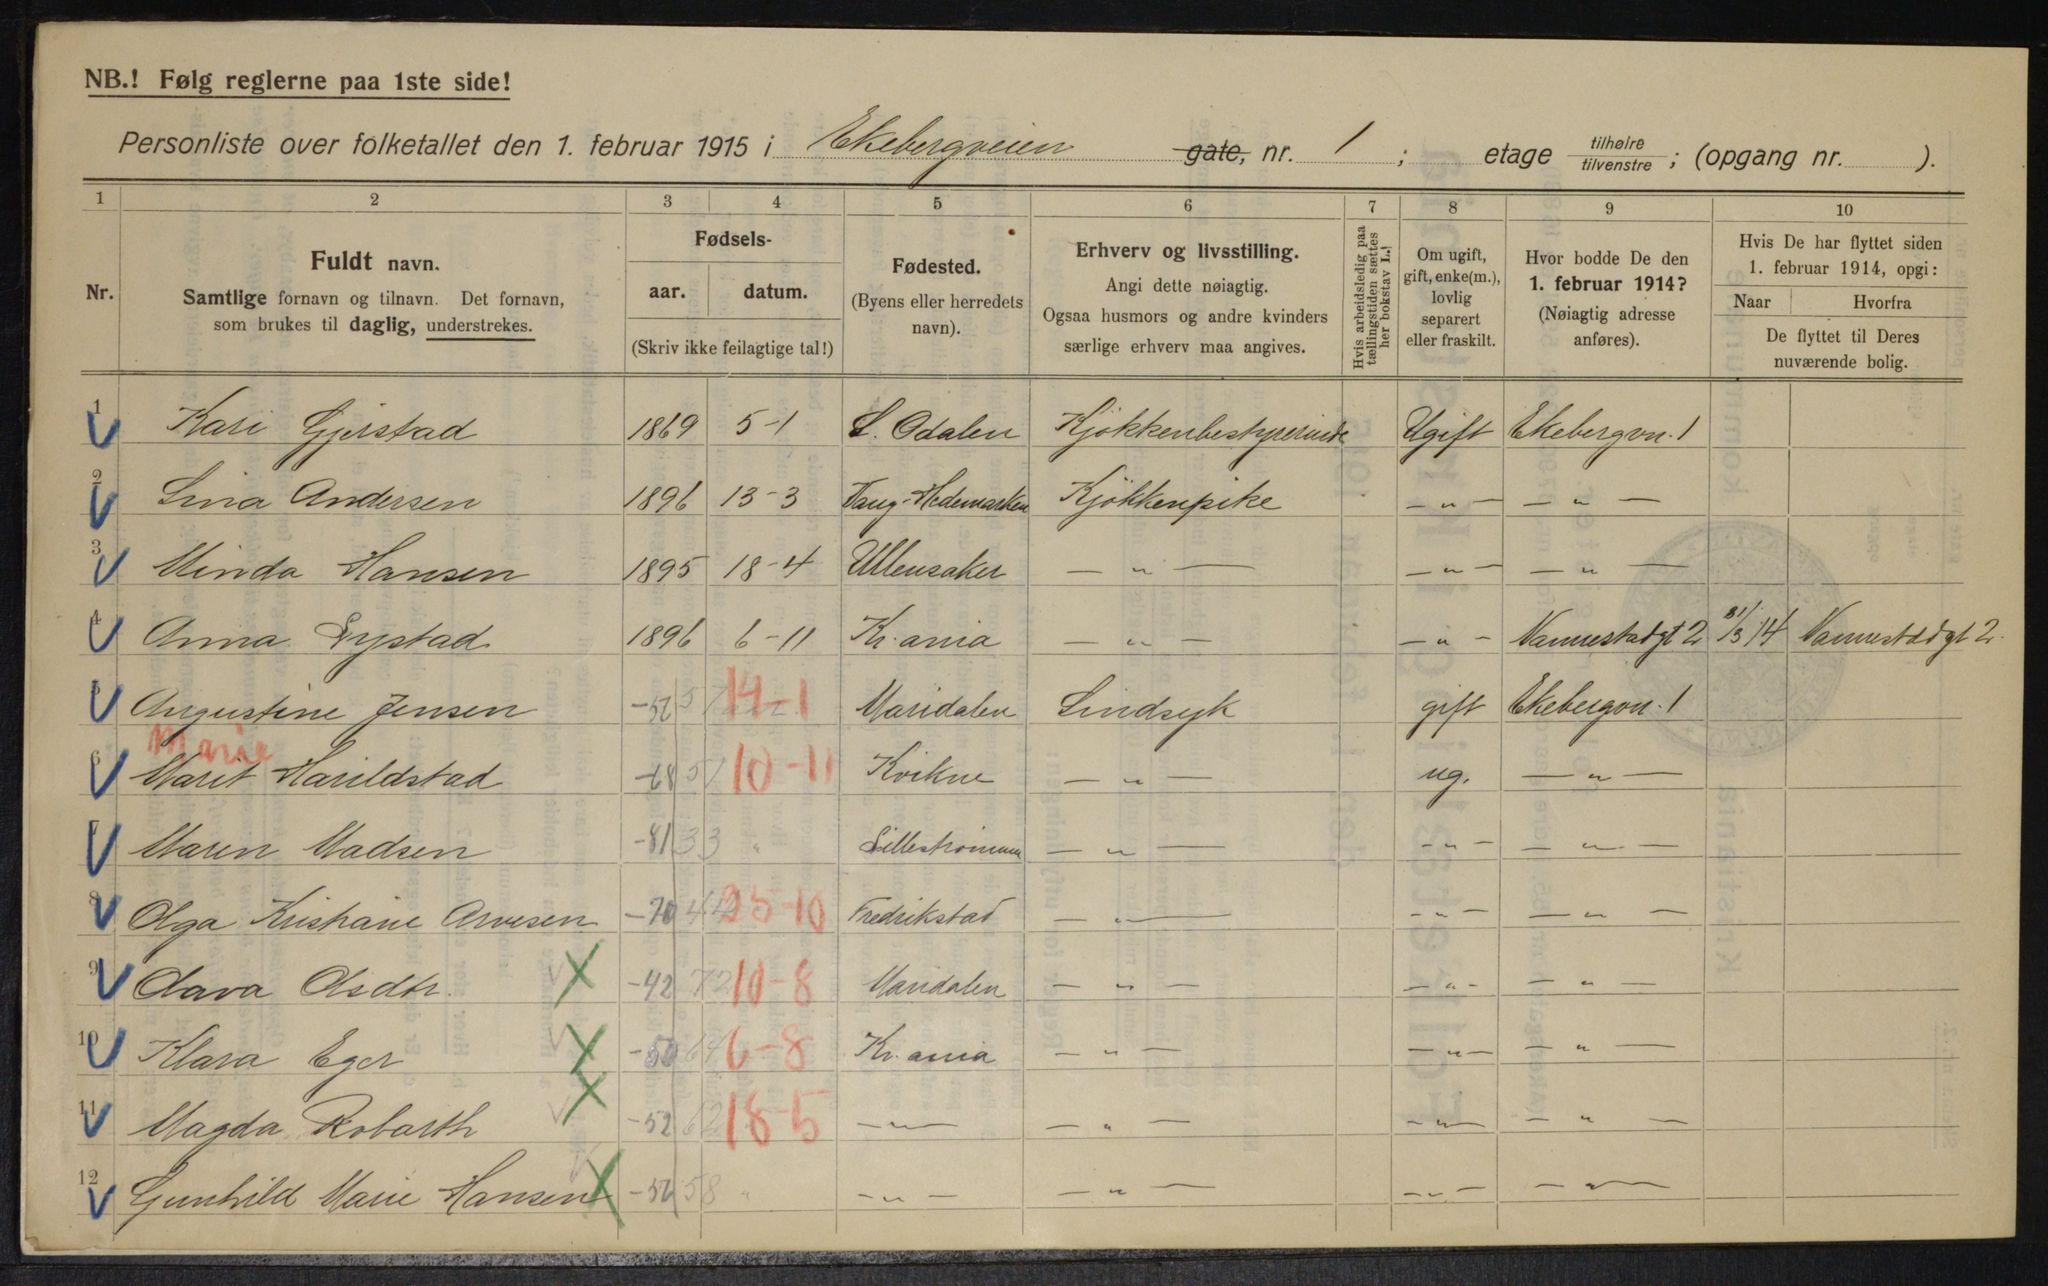 NB.! Følg reglerne paa 1ste side!
Personliste over folketallet den 1. februar 1915 i Ekebergveien gate, nr. 1 ; etage tilhøire tilvenstre ; (opgang nr. ).
1 2 3 4 5 6 7 8 9 10
Nr.
Fuldt navn.
Samtlige fornavn og tilnavn. Det fornavn,
som brukes til daglig, understrekes.
Fødsels-
aar. datum.
(Skriv ikke feilagtige tal!)
Fødested.
(Byens eller herredets
navn).
Erhverv og livsstilling.
Angi dette nøiagtig.
Ogsaa husmors og andre kvinders
særlige erhverv maa angives.
Hvis arbeidsledig paa
tællingstiden sættes
her bokstav L.!
Om ugift,
gift, enke(m.),
lovlig
separert
eller fraskilt.
Hvor bodde De den
1. februar 1914?
(Nøiagtig adresse
anføres).
Hvis De har flyttet siden
1. februar 1914, opgi:
Naar Hvorfra
De flyttet til Deres
nuværende bolig.
1 Kari Gjerstad 1869 5-1 S. Odalen Kjøkkenbestyrerinde Ugift Ekebergvn. 1
2 Lina Andersen 1896 13-3 Vang-Hedemarken Kjøkkenpike — " — — " —
3 Minda Hansen 1895 18-4 Ullensaker — " — — " — — " —
4 Anna Lystad 1896 6-11 Kr.ania — " — — " — Vannestadgt 2 31/3 14 Vannestadgt 2.
5 Augustine Jensen -52 57 14-1 Maridalen Sindsyk gift Ekebergvn. 1
Marie
6 Marit Harildstad 51 10-11 Kvikne — " — ug. — " —
7 Maren Madsen -81 33 " Lillestrømmen — " — — " — — " —
8 Olga Kristiane Arvesen -70 44 25-10 Fredrikstad — " — — " — — " —
9 Olava Olsdtr. -42 72 10-8 Maridalen — " — — " — — " —
10 Klara Eger -50 64 6-8 Kr.ania — " — — " — — " —
11 Magda Robarth -52 62 18-5 — " — — " — — " — — " —
12 Gunhild Marie Hansen 58 " — " — — " — — " — — " —